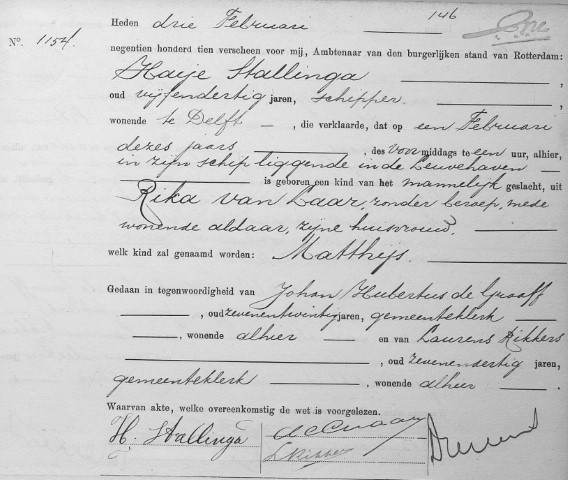 146
Heden drie Februari
No. 1154.
negentien honderd tien verscheen voor mij, Ambtenaar van den burgerlijken stand van Rotterdam:
Haije Stallinga ,
oud vijfendertig jaren, schipper. ,
wonende te Delft , die verklaarde, dat op een Februari
dezes jaars , des voormiddags te een uur, alhier,
in zijn schip liggende in de Leuvehaven
is geboren een kind van het mannelijk geslacht, uit
Rika van Laar, zonder beroep, mede
wonende aldaar, zijne huisvrouw.
welk kind zal genaamd worden: Matthijs.
Gedaan in tegenwoordigheid van Johan Hubertus de Graaff
, oud zevenentwintig jaren, gemeenteklerk
, wonende alhier en van Laurens Rikkers
, oud zevenendertig jaren,
gemeenteklerk , wonende alhier .
Waarvan akte, welke overeenkomstig de wet is voorgelezen.
H. Stallinga